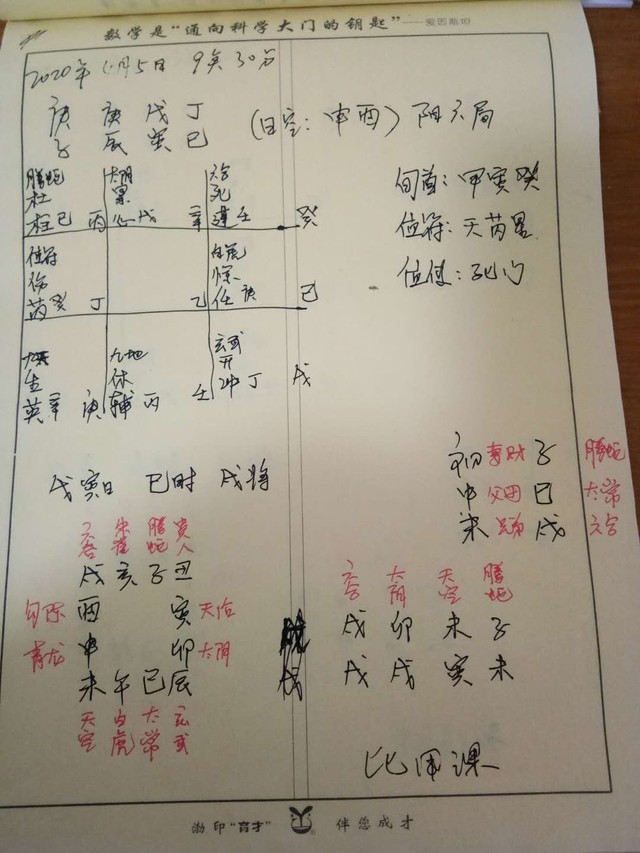 数学是“通向科学大门的钥匙”——爱因斯坦
2020年 月5日 9点30分
庚 庚 戊 丁
子 辰 寅 巳
(日空：申酉) 阳六局
腾蛇 太阴 六合
杜 景 死
柱巳 丙 心戊 辛 蓬壬 癸
值符 白虎
伤 惊
芮癸 丁 乙 任庚 己
九天 九地 玄武
生 休 开
英辛 庚 辅丙 壬 冲丁 戊
旬首：甲寅癸
值符：天芮星
值使：死门
戊寅日 巳时 戌将
六合 朱雀 腾蛇 贵人
戌 亥 子 丑
勾陈 酉 寅 天后
青龙 申 卯 太阴
未 午 巳 辰
天空 白虎 太常 玄武
初 妻财 子 腾蛇
中 父母 巳 太常
末 兄弟 戌 六合
六合 太阴 天空 腾蛇
戌 卯 未 子
戌 戌 寅 未
比用课
渤印“育才” 伴您成才